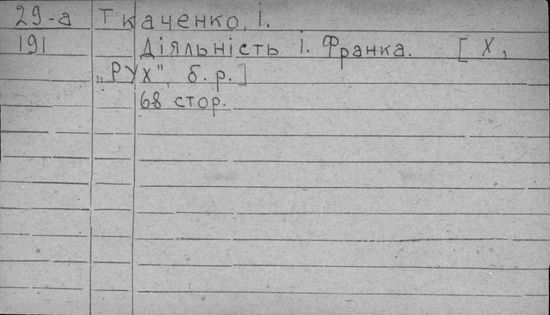 29-а Ткаченко, І.
191 Діяльність І. Франка. [Х,
„РУХ", б. р.]
68 стор.